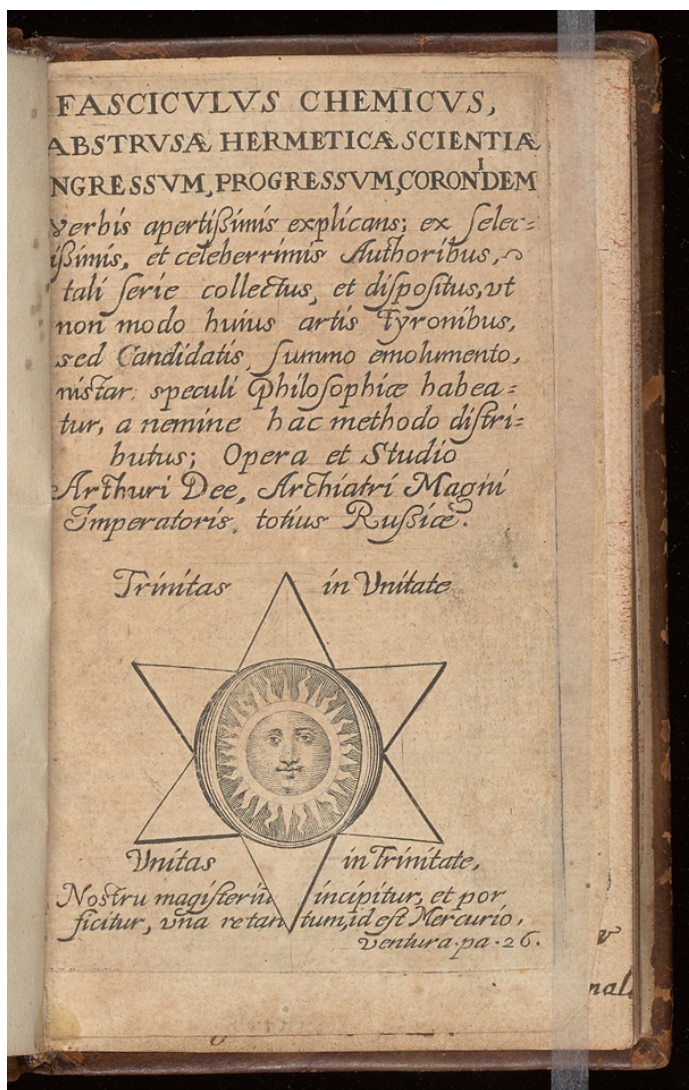 FASCICVLVS CHEMICVS,
ABSTRVSÆ HERMETICÆ SCIENTIÆ
NGRESSVM, PROGRESSVM, CORONIDEM
verbis apertißimis explicans; ex selec=
ißimis, et celeberrimis Authoribus,
tali serie collectus, et dispositus, vt
non modo huius artis Tyronibus,
sed Candidatis, summo emolumento,
nistar speculi Philosophiæ habea=
tur, a nemine hac methodo distri=
butus; Opera et Studio
Arthuri Dee, Archiatri Magni
Imperatoris, totius Rußiæ.
Trinitas in Vnitate
Vnitas in Trinitate,
Nostru magisteriu incipitur, et por
ficitur, vna re tan tum, id est Mercurio,
ventura·pa·26.
v
nal